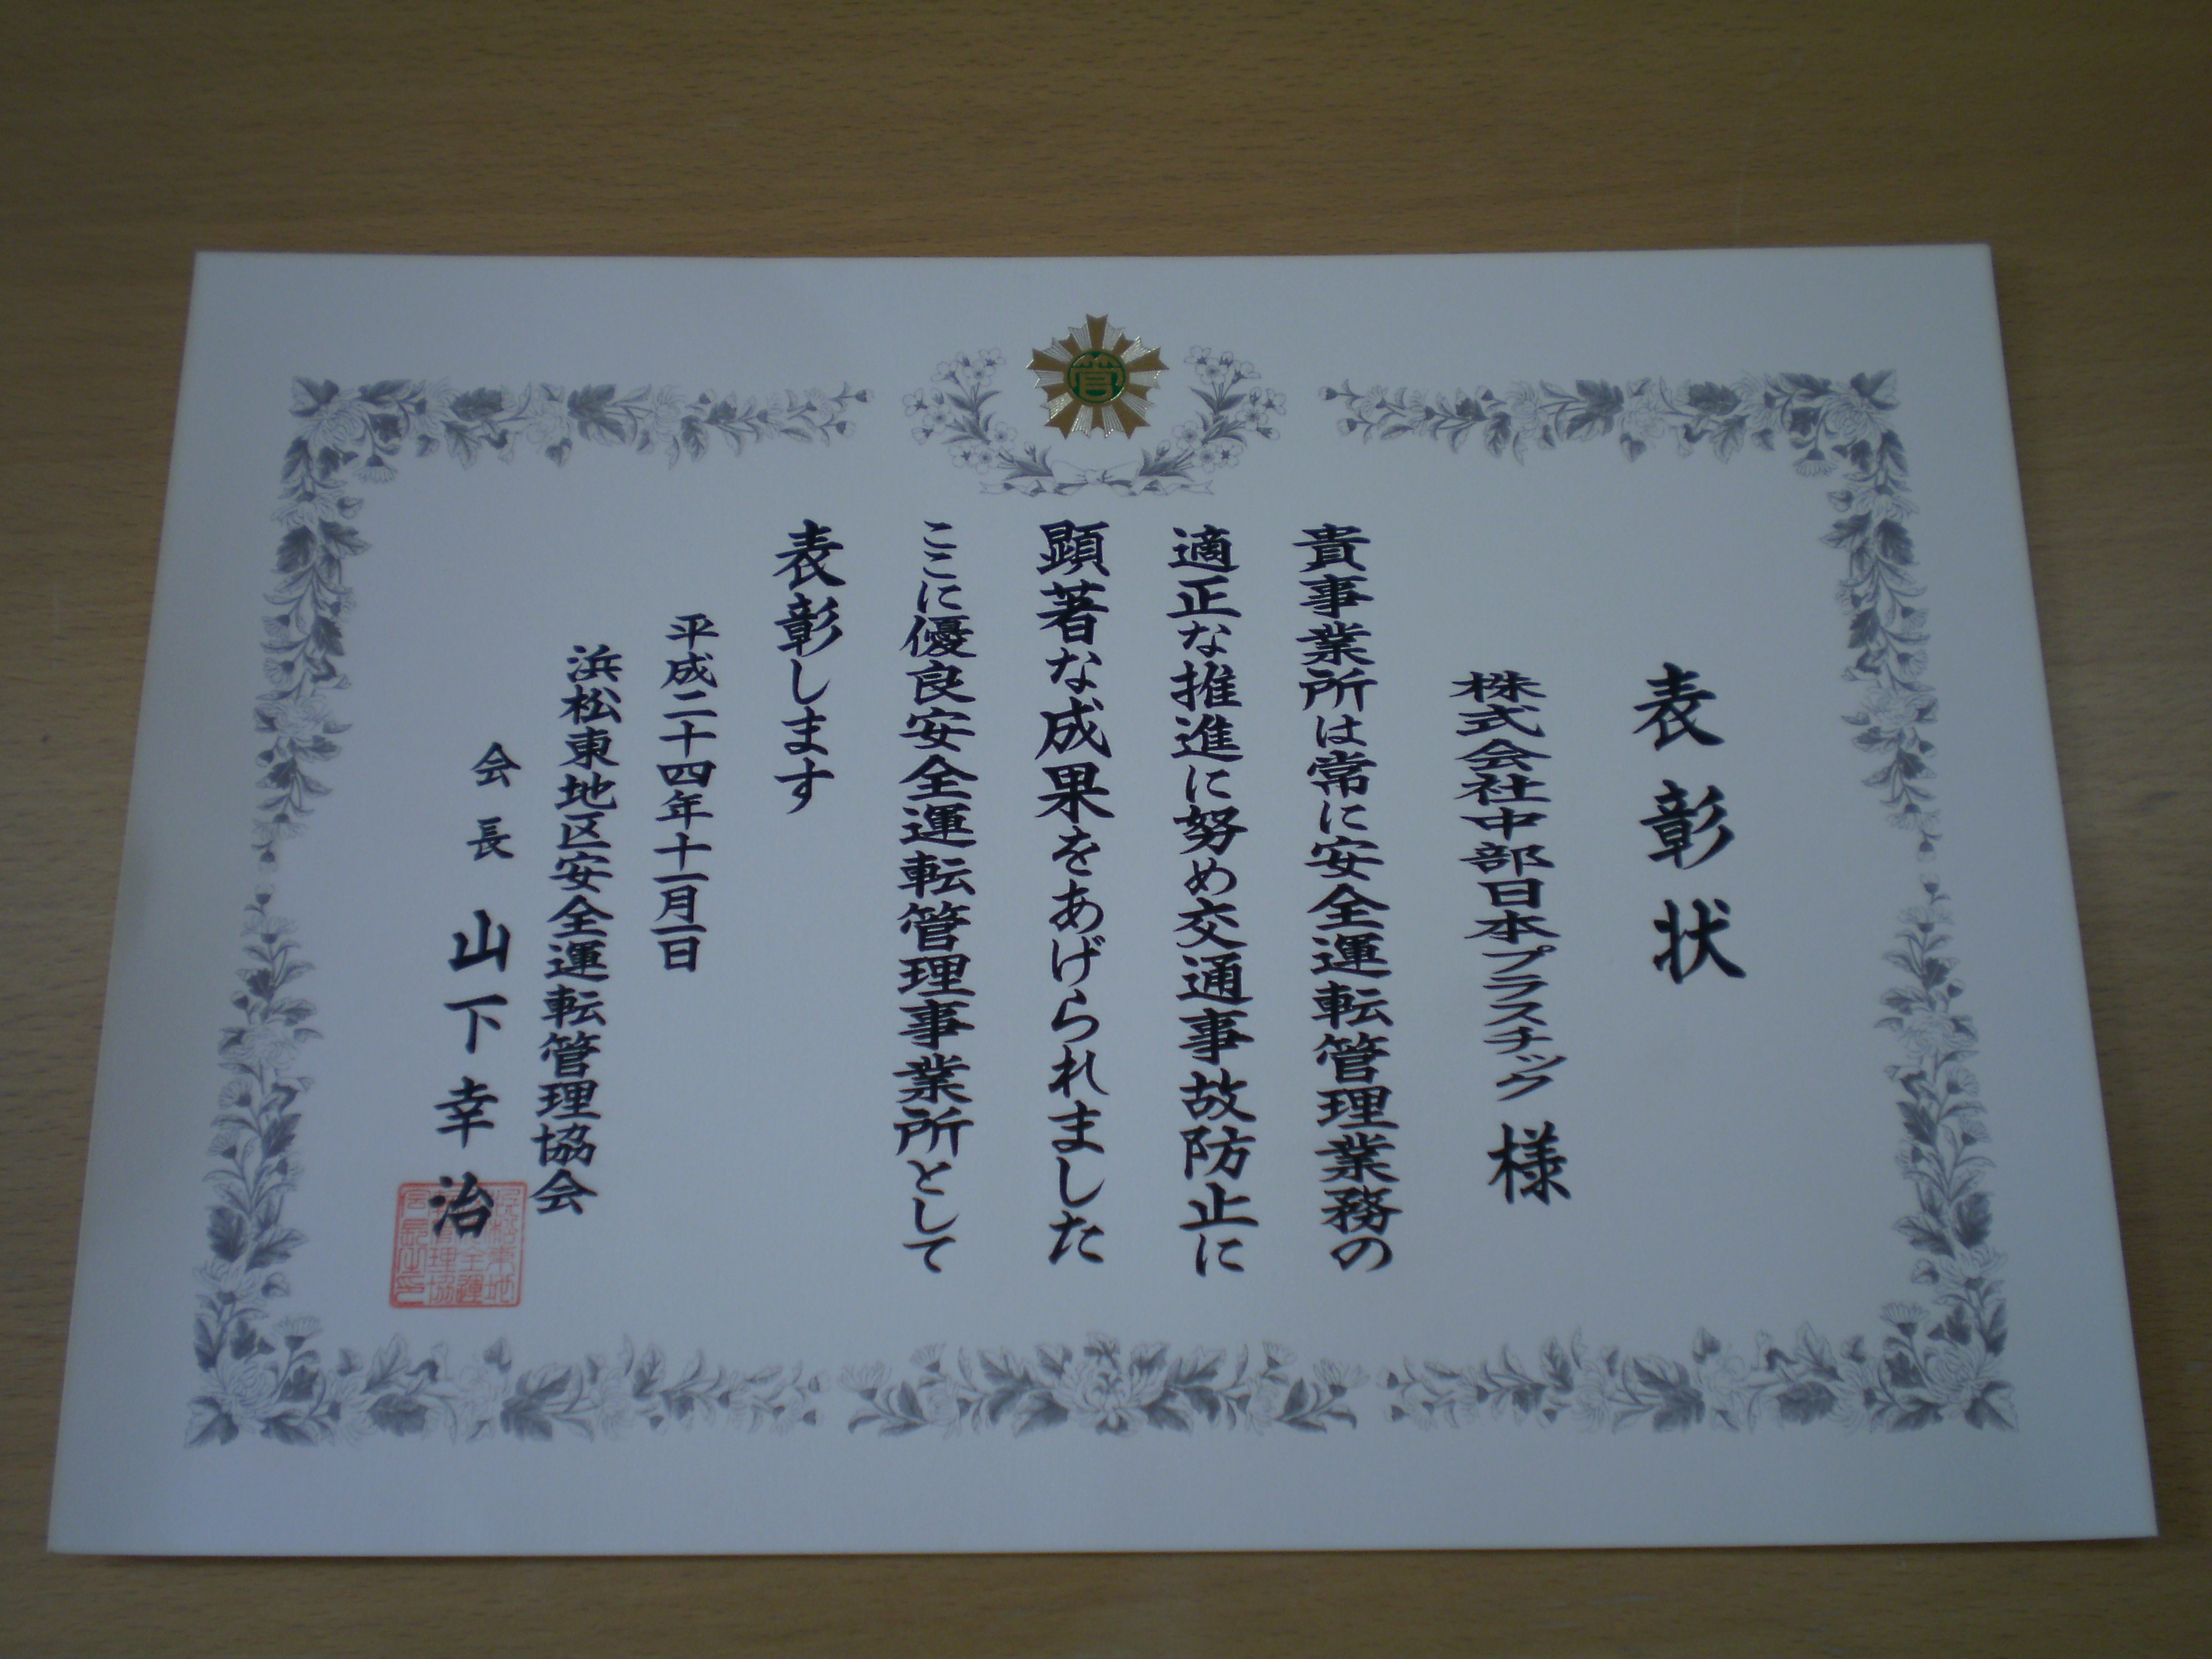 管
表彰状
株式会社中部日本プラスチック 様
貴事業所は常に安全運転管理業務の
適正な推進に努め交通事故防止に
顕著な成果をあげられました
ここに優良安全運転管理事業所として
表彰します
平成二十四年十一月一日
浜松東地区安全運転管理協会
会長 山下幸治